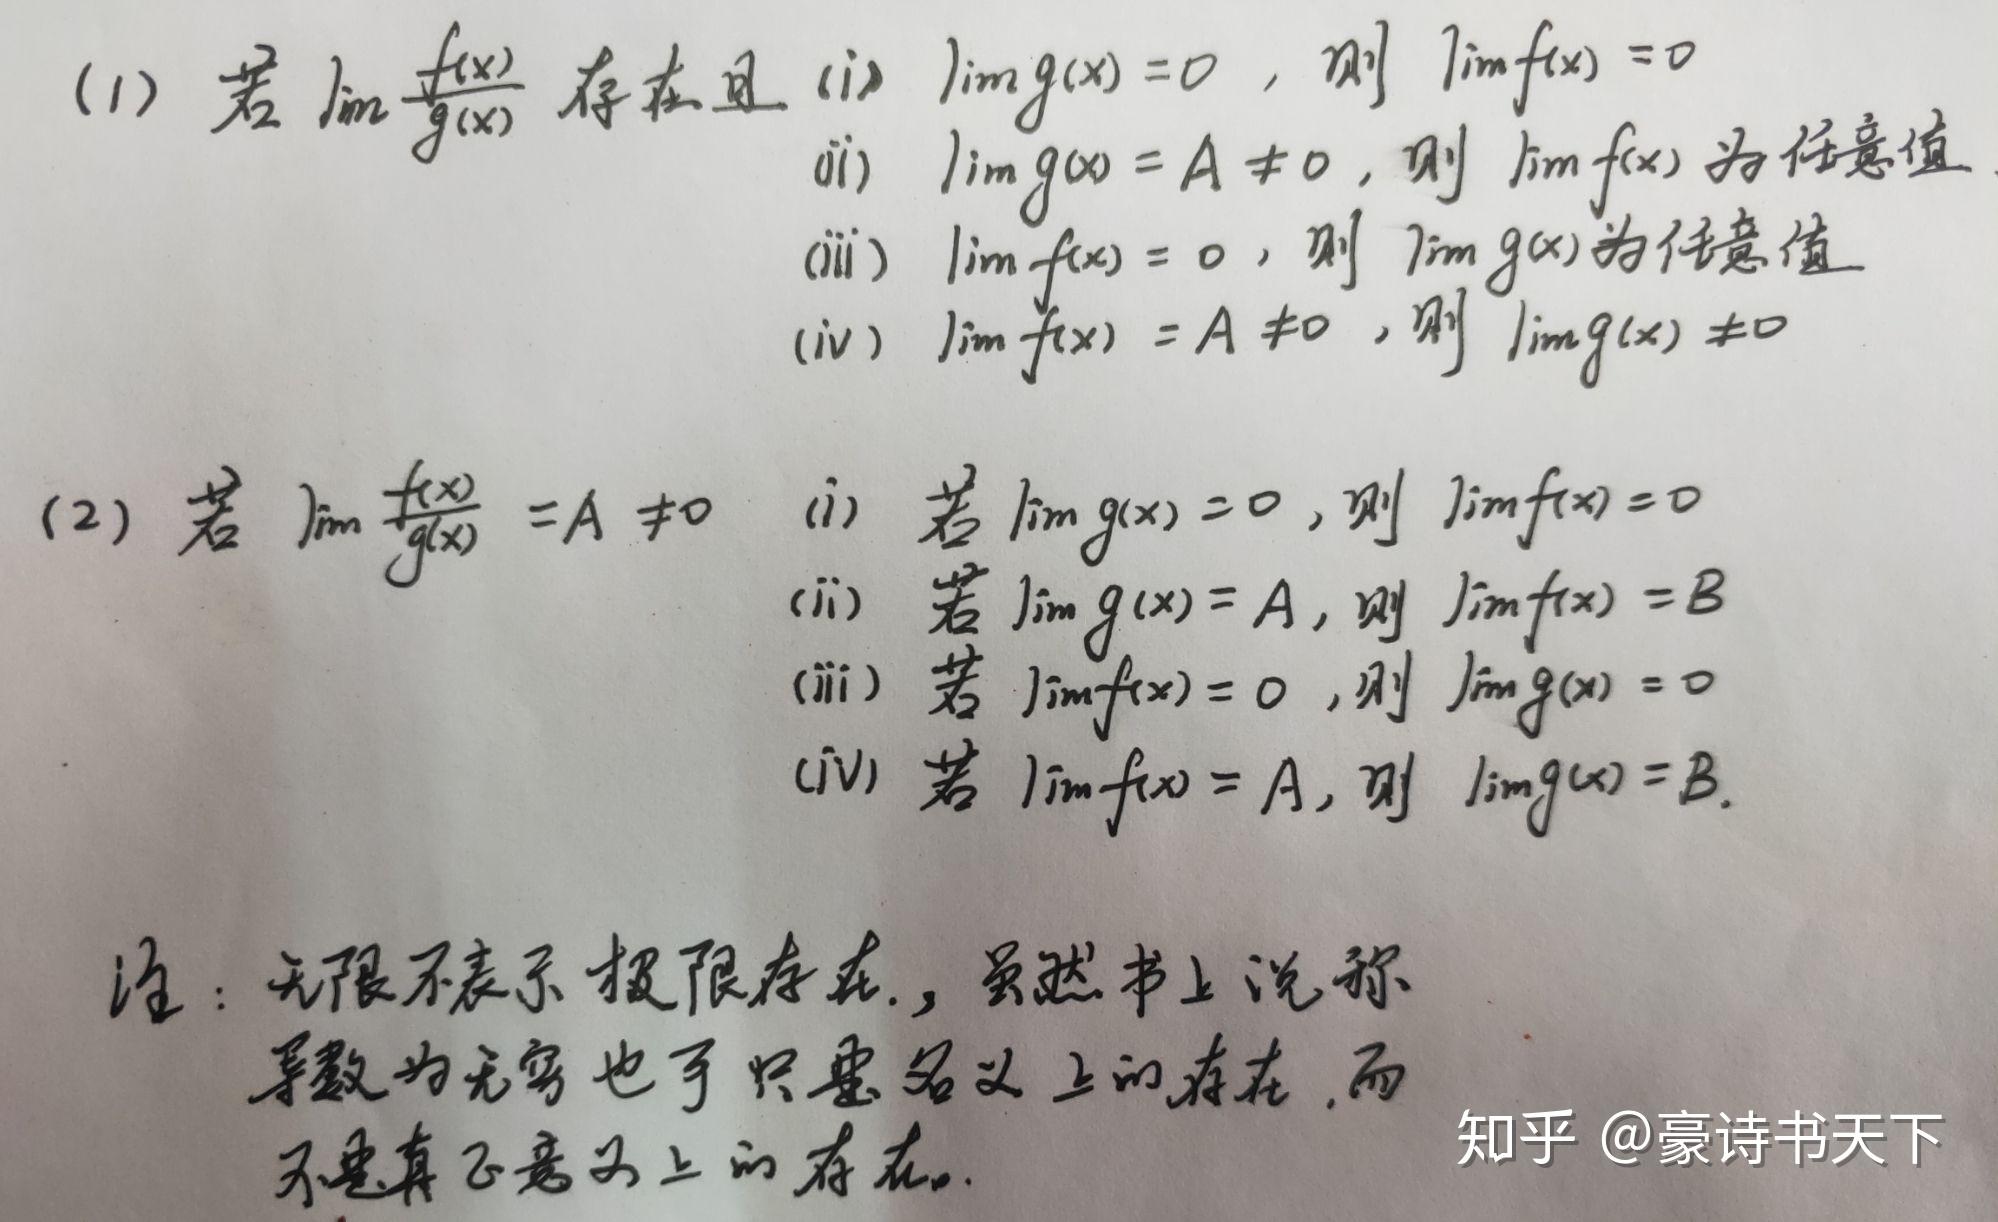 (1) 若 lim f(x)/g(x) 存在且 (i) lim g(x) = 0 , 则 lim f(x) = 0
(ii) lim g(x) = A ≠ 0 , 则 lim f(x) 为任意值
(iii) lim f(x) = 0 , 则 lim g(x) 为任意值
(iv) lim f(x) = A ≠ 0 , 则 lim g(x) ≠ 0
(2) 若 lim f(x)/g(x) = A ≠ 0 (i) 若 lim g(x) = 0 , 则 lim f(x) = 0
(ii) 若 lim g(x) = A , 则 lim f(x) = B
(iii) 若 lim f(x) = 0 , 则 lim g(x) = 0
(iv) 若 lim f(x) = A , 则 lim g(x) = B.
注：无限不表示极限存在.，虽然书上说称
导数为无穷也可只是名义上的存在.而
不是真正意义上的存在。
知乎 @豪诗书天下